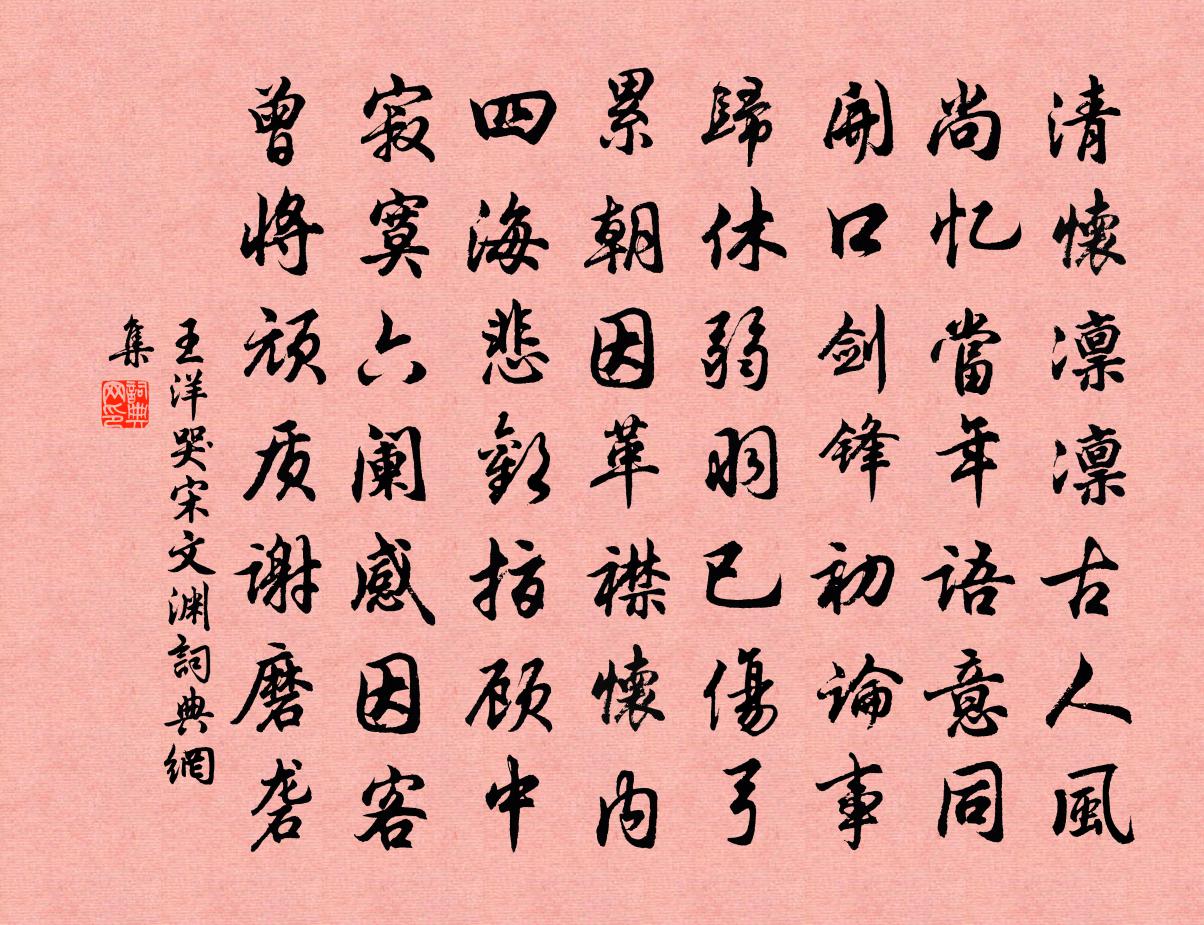 清懷凛凛古人風
尚忆當年語意同
開口剑锋初論事
歸休弱羽已傷弓
累朝因革襟懷内
四海悲歡指顾中
寂寞六阑感因客
曾将顽质谢磨砻
王洋哭宋文渊詞典網
集
詞典網印